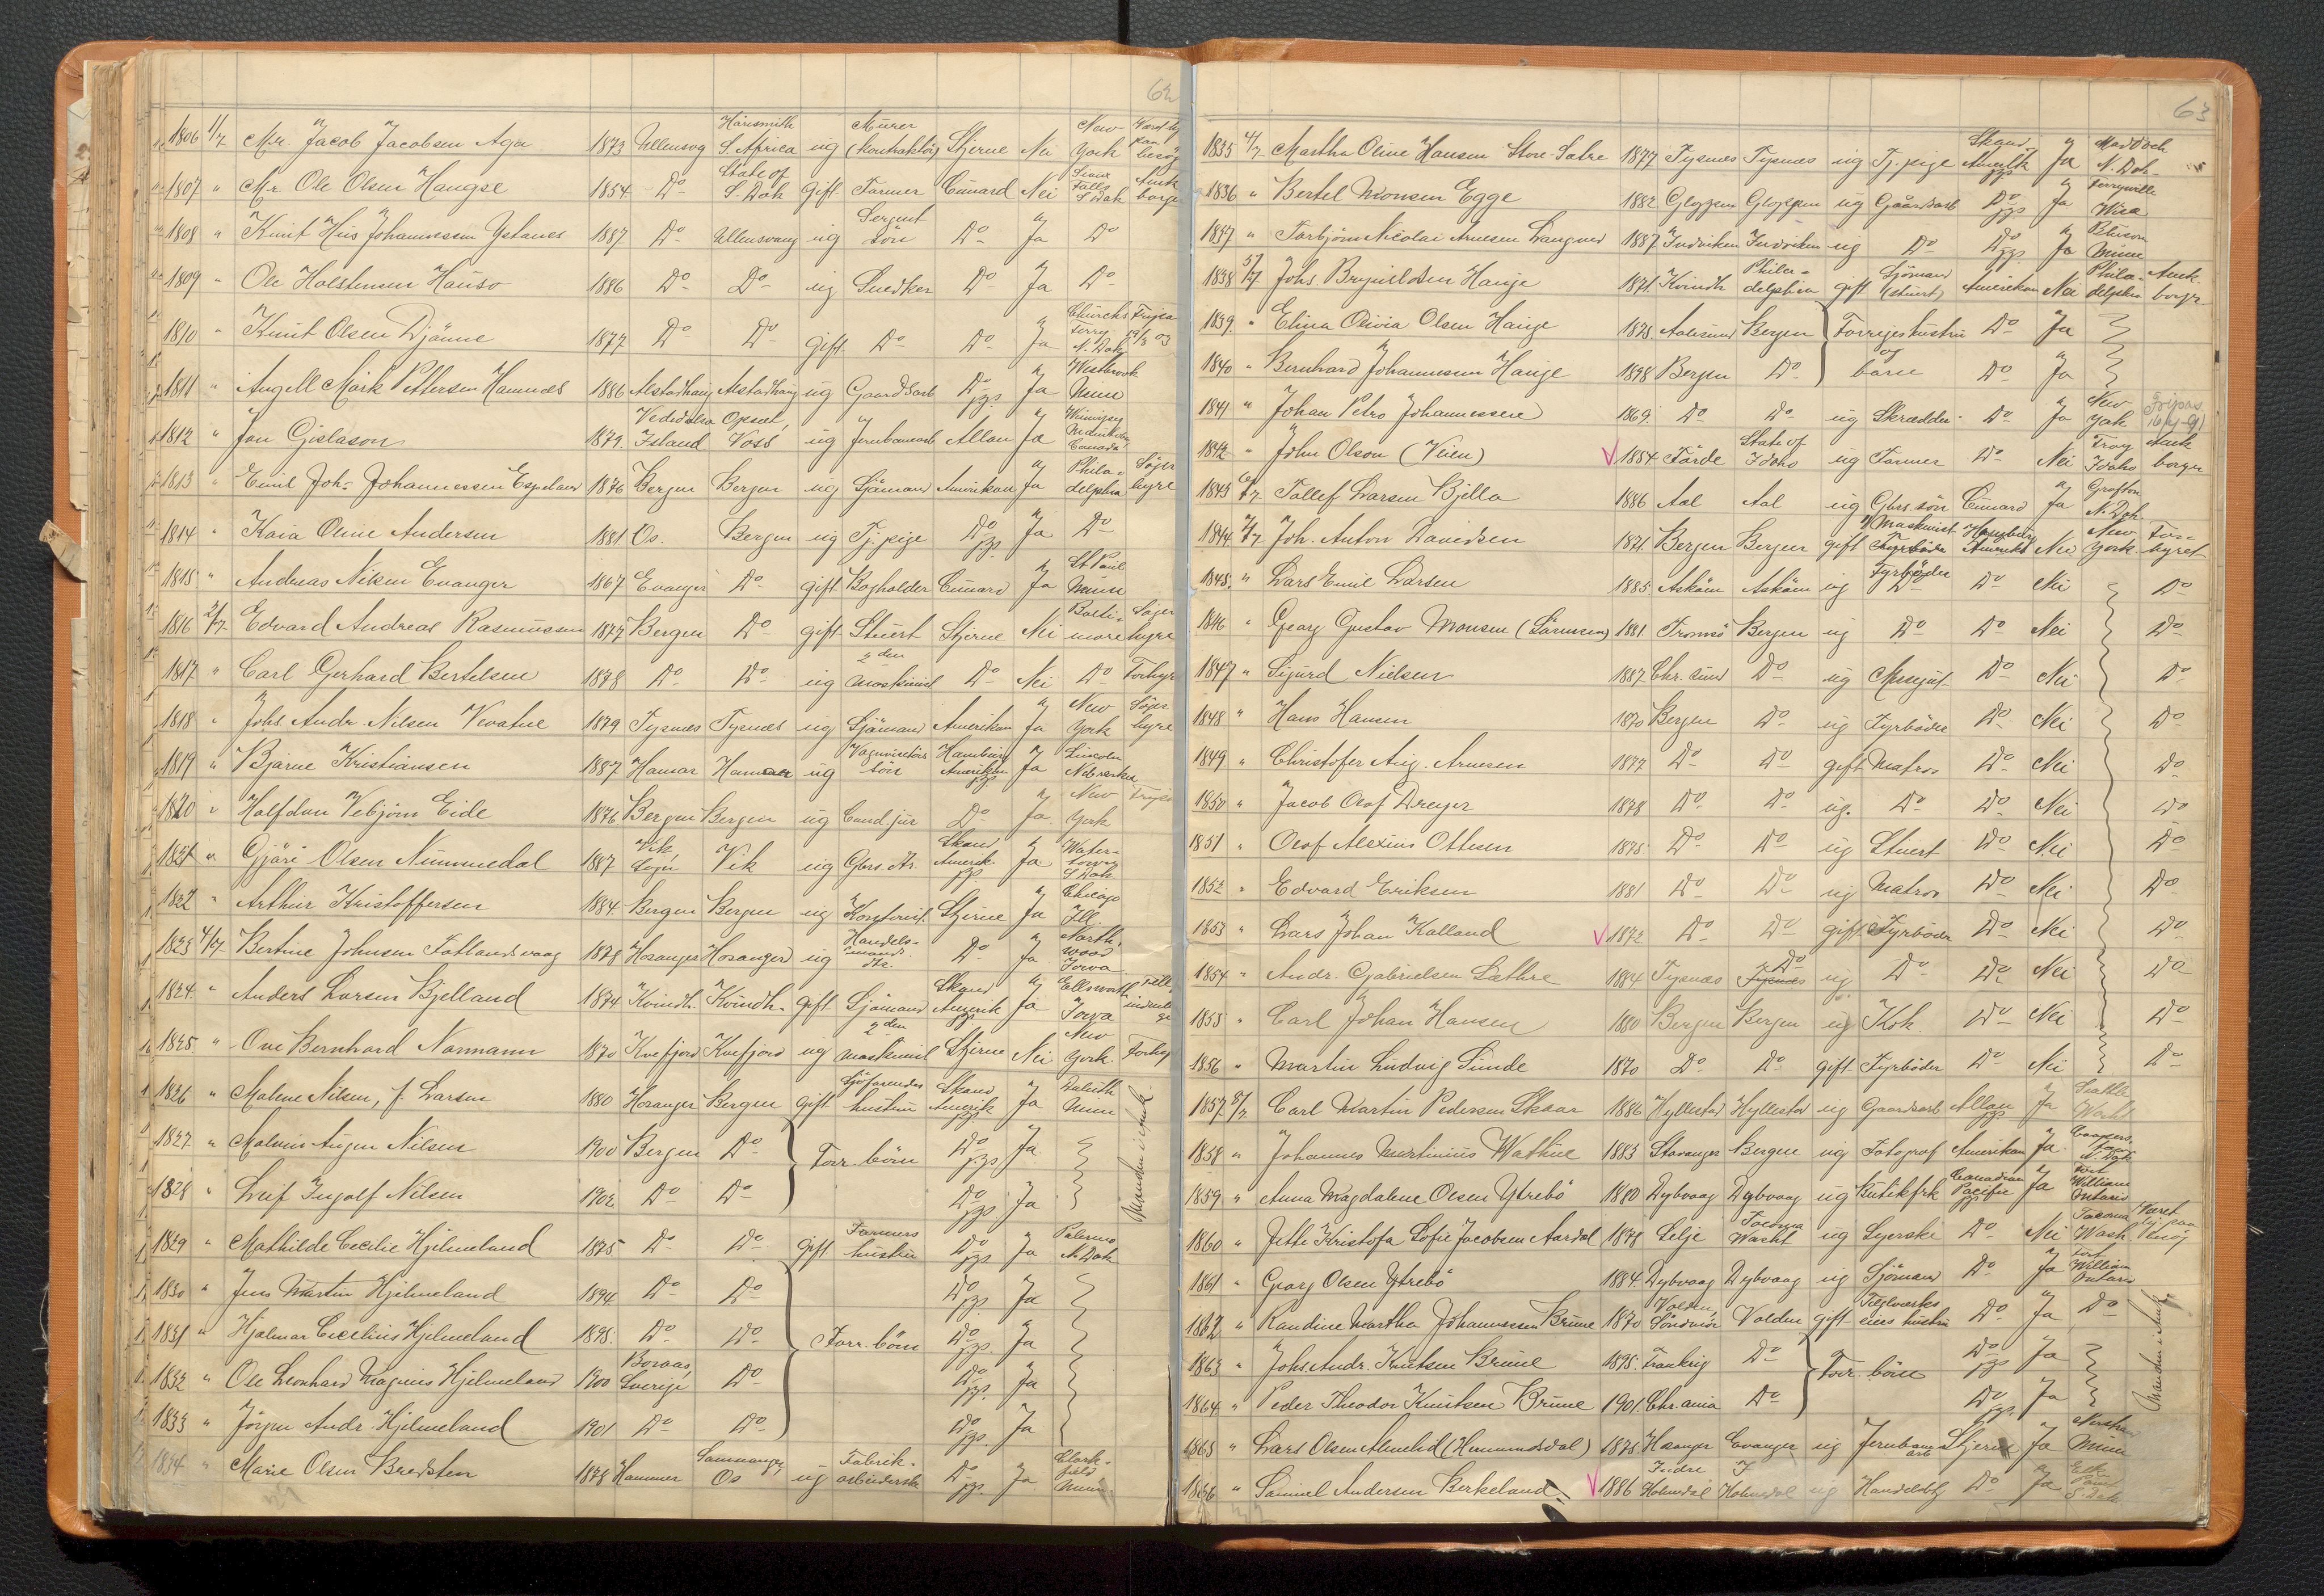 62
1806 1/7 Mr. Jacob Jacobsen Aga 1873 Ullensvg Harrismith S. Africa ug Murer (Kontraktör) Stjerne Nei New York
1807 " Mr Ole Olsen Hauge 1854 Do State of S. Dak gift Farmer Cunard Nei Sioux Falls S Dak Amk borger
1808 " Knut Hus Johannessen Ystanes 1887 Do Ullensvang ug Sergent sön Do Ja Do
1809 " Ole Holstensen Hauso 1886 Do Do ug Snedker Do Ja Do
1810 " Knut Olsen Djönne 1877 Do Do gift Do Do Ja Churchs ferry N. Dak
1811 " Angell Mörk Pettersen Hamnes 1886 Alstadhaug Alstadhaug ug Gaardsarb Do Ja Westbrook Minn
1812 " Jon Gislason 1879 Island Opset, Voss ug Jernbanearb Allan Ja Winnipeg Canada
1813 " Emil Joh. Johannessen Espeland 1876 Bergen Bergen ug Sjömand Amerikan Ja Phila- delphia Söger hyre
1814 " Kaia Oline Andersen 1881 Os. Bergen ug Tj. pige Do Ja Do
1815 " Andreas Nilsen Evanger 1867 Evanger Do gift Bogholder Cunard Ja St Paul Minn
1816 2/7 Edvard Andreas Rasmussen 1877 Bergen Do gift Stuert Stjerne Nei Balti- more Söger hyre
1817 " Carl Gerhard Bertelsen 1878 Do Do ug 2den Maskinist Do Nei Do Forhyr
1818 " Johs Andr. Nilsen Vevatne 1879 Tysnes Tysnes ug Sjömand Amerikan Ja New York Söger hyre
1819 " Bjarne Kristiansen 1887 Hamar Hamar ug sön Hamburg Amerika Ja Lincoln Nebraska
1820 " Halfdan Vebjörn Eide 1876 Bergen Bergen ug Cand. jur Do Ja New York
1821 " Gjöri Olsen Nummedal 1887 Vik Sogn Vik ug Gbrs. dtr. Skand Amerik Ja Water- town S Dak
1822 " Arthur Kristoffersen 1884 Bergen Bergen ug Kontorist. Stjerne Ja Chicago Ill
1823 4/7 Bertine Johnsen Fatlandsvaag 1878 Hosanger Hosanger ug Handels- mands dtr. Do Ja North- wood Iowa
1824 " Anders Larsen Bjelland 1874 Kvindh. Kvindh. gift Sjömand Skand Amerik Ja Ellsworth Iowa
1825 " Ove Bernhard Normann 1870 Kvefjord Kvefjord ug 2den Maskinist Stjerne Nei New York Forhyr
1826 " Malene Nilsen, f. Larsen 1880 Hosanger Bergen gift Sjöfarendes hustru Skand Amerik Ja Duluth Minn
1827 " Malvin Nilsen 1900 Bergen Do Forr. börn Do Ja
1828 " Leif Ingolf Nilsen 1902 Do Do Do Ja
Manden i Amk.
1829 " Mathilde Cecilie Hjelmeland 1875 Do Do gift Farmers hustru Do Ja Palermo N. Dak
1830 " Jens Martin Hjelmeland 1894 Do Do Do Ja
1831 " Hjalmar Cecilius Hjelmeland 1898 Do Do Forr. börn Do Ja
1832 " Ole Leonhard Magnus Hjelmeland 1900 Boraas, Sverige Do Do Ja
1833 " Jörgen Andr. Hjelmeland 1901 Do Do Do Ja
1834 " Marie Olsen Bredsten 1878 Hammer Samnanger, Os ug Fabrik- arbeiderske Do Ja Clark- field Minn.
63
1835 4/7 Martha Oline Hansen Store-Satre 1877 Tysnes Tysnes ug Tj. pige Skand. Amerik Ja Maddock N. Dak
1836 " Bertel Monsen Egge 1882 Gloppen Gloppen ug Gaardsarb Do Ja Ferryville Wisc
1837 " Torbjörn Nicolai Arnesen Langved 1887 Indviken Indviken ug Do Do Ja Minn
1838 5/7 Johs. Brynildsen Hauge 1871 Kvindh Phila- delphia gift Sjömand (stuert) Amerikan Nei Phila- delphia Amk. borger
1839 " Elina Olivia Olsen Hauge 1875 Aalesund Bergen Forriges hustru Do Ja
1840 " Bernhard Johannessen Hauge 1898 Bergen Do og barn Do Ja
1841 " Johan Petro Johannessen 1869 Do Do ug Skrædder Do Ja New York
1842 " John Olson (Veien) V 1884 Förde State of Idaho ug Farmer Do Nei Troy Idaho Amk borger
1843 6/7 Tollef Larsen Bjella 1886 Aal Aal ug Gbrs. sön Cunard Ja Grafton N. Dak
1844 7/7 Joh. Anton Davidsen 1871 Bergen Bergen gift Maskinist Fyrböder Hamburg Amerika Nei New York For- hyret
1845 " Lars Emil Larsen 1885 Asköen Asköen ug Fyrböder Do Do Nei Do
1846 " Georg Gustav Monsen (Sörensen) 1881 Tromsö Bergen ug Do Do Nei Do
1847 " Sigurd Nielsen 1887 Chr. sund Do ug Messegut Do Nei Do
1848 " Hans Hansen 1870 Bergen Do ug Fyrböder Do Nei Do
1849 " Christofer Aug. Arnesen 1877 Do Do gift Matros Do Nei Do
1850 " Jacob Olaf Dreyer 1878 Do Do ug. Do Do Nei Do
1851 " Olaf Alexius Ottesen 1875 Do Do ug Stuert Do Nei Do
1852 " Edvard Eriksen 1881 Do Do ug Matros Do Nei Do
1853 " Lars Johan Kalland V 1872 Do Do gift Fyrböder Do Nei Do
1854 " Andr. Gabrielsen Lathre 1884 Tysnes Tysnes Do ug Do Do Nei Do
1855 " Carl Johan Hansen 1880 Bergen Bergen ug Kok Do Nei Do
1856 " Martin Ludvig Sunde 1870 Do Do gift Fyrböder Do Nei Do
1857 8/7 Carl Martin Pedersen Skaar 1886 Hyllestad Hyllestad ug Gaardsarb Allan Ja Seattle Wash
1858 " Johannes Martinius Wathne 1883 Stavanger Bergen ug Fotograf Amerikan Ja Coopers- town N. Dak
1859 " Anna Magdalene Olsen Ytrebö 1880 Dybvaag Dybvaag ug Butikfrk Canadian Pacific Ja Fort William Ontario
1860 " Jette Kristofa Sofie Jacobsen Aardal 1878 Selje Tacoma Wash ug Syerske Do Nei Tacoma Wash
1861 " Georg Olsen Ytrebö 1884 Dybvaag Dybvaag ug Sjömand Do Ja Fort William Ontario
1862 " Randine Martha Johannessen Brune 1870 Volden, Söndmör Volden gift hustru Do Ja Do
1863 " Johs. Andr. Knutsen Brune 1895 Frankrig Do Forr. börn Do Ja
1864 " Peder Theodor Knutsen Brune 1901 Chr. ania Do Do Ja
Manden i Amk.
1865 " Lars Olsen Almelid (Hermundsdal) 1875 Hosanger Evanger ug Jernbane arb Stjerne Ja Minn
1866 " Samuel Andersen Berkeland V 1886 Indre Holmedal I Holmedal ug Handelsbtj Do Ja Elk Point S. Dak